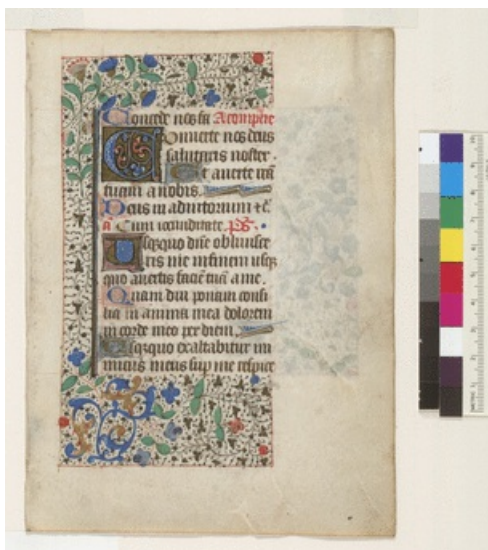 Concede nos fa A complie
Conuerte nos deus
salutaris noster.
Et auerte iram
tuam a nobis.
Deus in adiutorium &c.
a Cum iocunditate. ps.
Usquequo dne obliuisce
ris me in finem usq
quo auertis faciē tuā a me.
Quam diu ponam consi
lia in anima mea dolorem
in corde meo per diem.
Usquequo exaltabitur ini
micus meus sup me respice